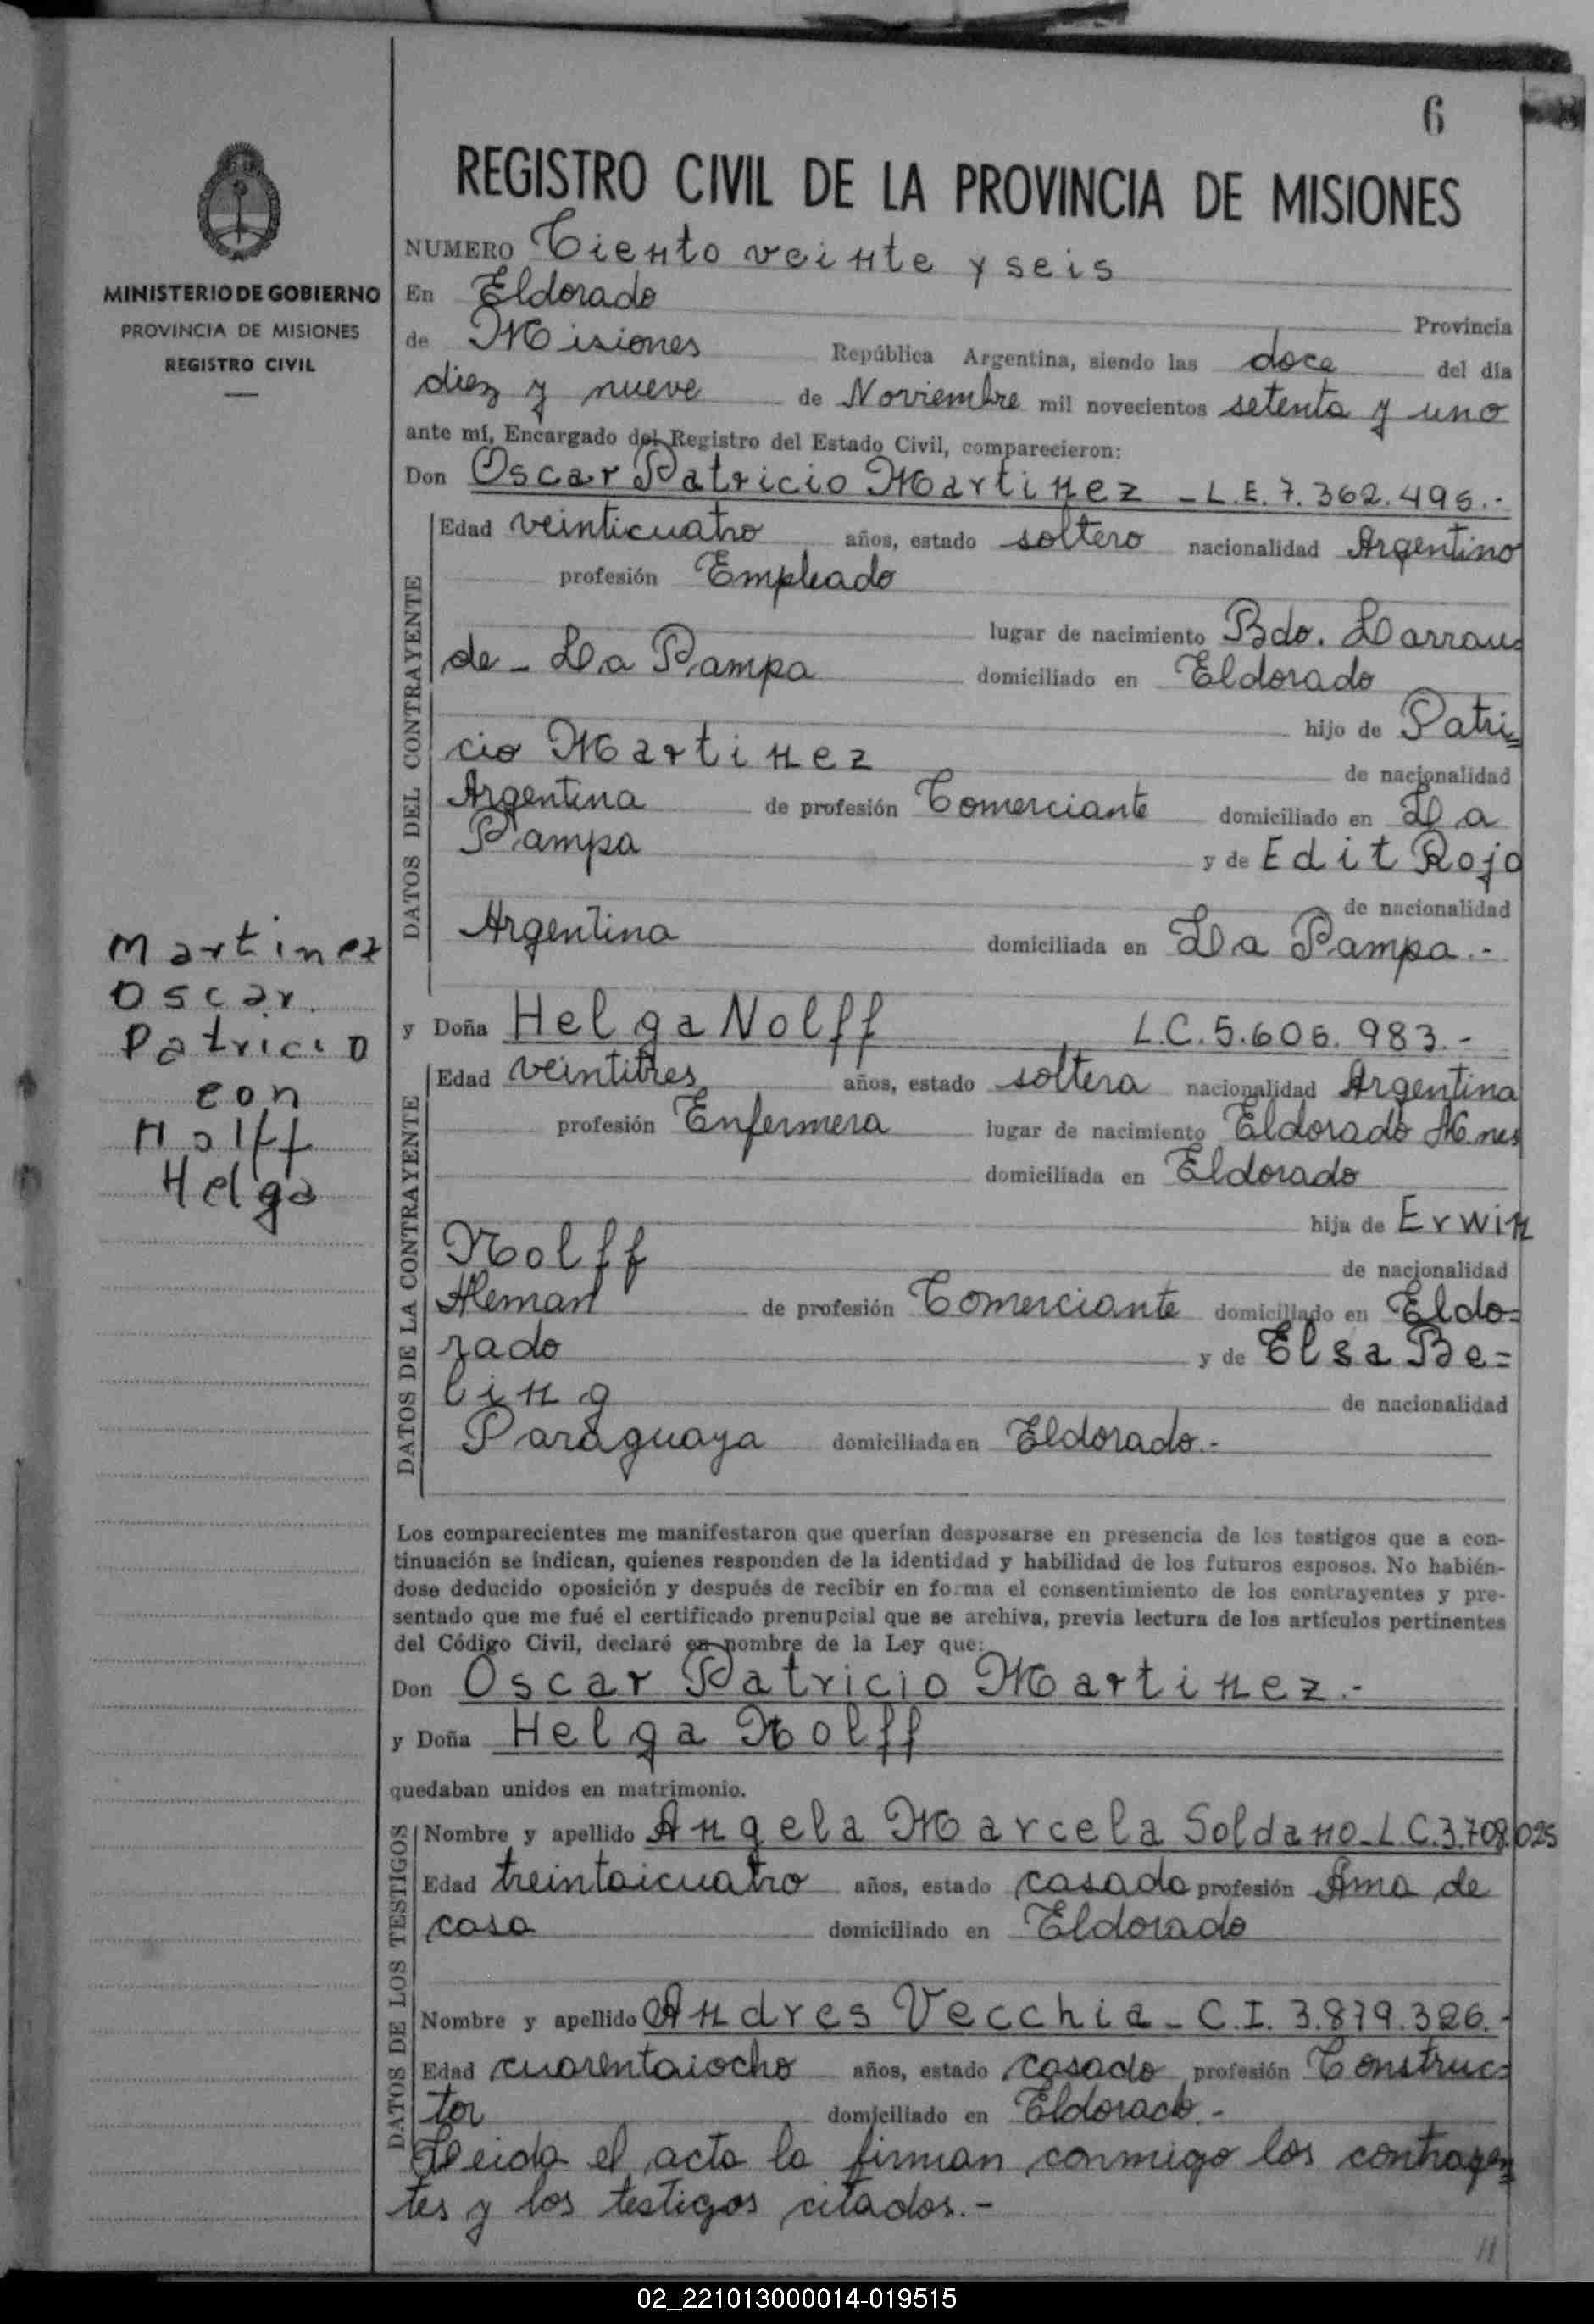 6
REGISTRO CIVIL DE LA PROVINCIA DE MISIONES
MINISTERIO DE GOBIERNO
PROVINCIA DE MISIONES
REGISTRO CIVIL
NUMERO Ciento veinte y seis
En Eldorado Provincia
de Misiones República Argentina, siendo las doce del día
diez y nueve de Noviembre mil novecientos setenta y uno
ante mí, Encargado del Registro del Estado Civil, comparecieron:
Don Oscar Patricio Martinez - L.E. 7.362.495.-
DATOS DEL CONTRAYENTE
Edad veinticuatro años, estado soltero nacionalidad Argentino
profesión Empleado
lugar de nacimiento Bdo. Larrou=
de - La Pampa domiciliado en Eldorado
hijo de Patri=
cio Martinez
de nacionalidad
Argentina de profesión Comerciante domiciliado en La
Pampa y de Edit Rojo
de nacionalidad
Argentina domiciliada en La Pampa.-
Martinez
Oscar
Patricio
con
Nolff
Helga
y Doña Helga Nolff L.C. 5.606.983.-
DATOS DE LA CONTRAYENTE
Edad veintitres años, estado soltera nacionalidad Argentina
profesión Enfermera lugar de nacimiento Eldorado Mnes
domiciliada en Eldorado
hija de Erwin
Nolff
de nacionalidad
Aleman de profesión Comerciante domiciliado en Eldo=
rado y de Elsa Be=
ling
de nacionalidad
Paraguaya domiciliada en Eldorado.-
Los comparecientes me manifestaron que querían desposarse en presencia de los testigos que a con-
tinuación se indican, quienes responden de la identidad y habilidad de los futuros esposos. No habién-
dose deducido oposición y después de recibir en forma el consentimiento de los contrayentes y pre-
sentado que me fué el certificado prenupcial que se archiva, previa lectura de los artículos pertinentes
del Código Civil, declaré en nombre de la Ley que:
Don Oscar Patricio Martinez.-
y Doña Helga Nolff
quedaban unidos en matrimonio.
DATOS DE LOS TESTIGOS
Nombre y apellido Angela Marcela Soldano - L.C. 3.708.025
Edad treintaicuatro años, estado casada profesión Ama de
casa domiciliado en Eldorado
Nombre y apellido Andres Vecchia - C.I. 3.879.326.-
Edad cuarentaiocho años, estado casado profesión Construc=
tor domiciliado en Eldorado.-
Leida el acta la firman conmigo los contrayen=
tes y los testigos citados.-
02_221013000014-019515